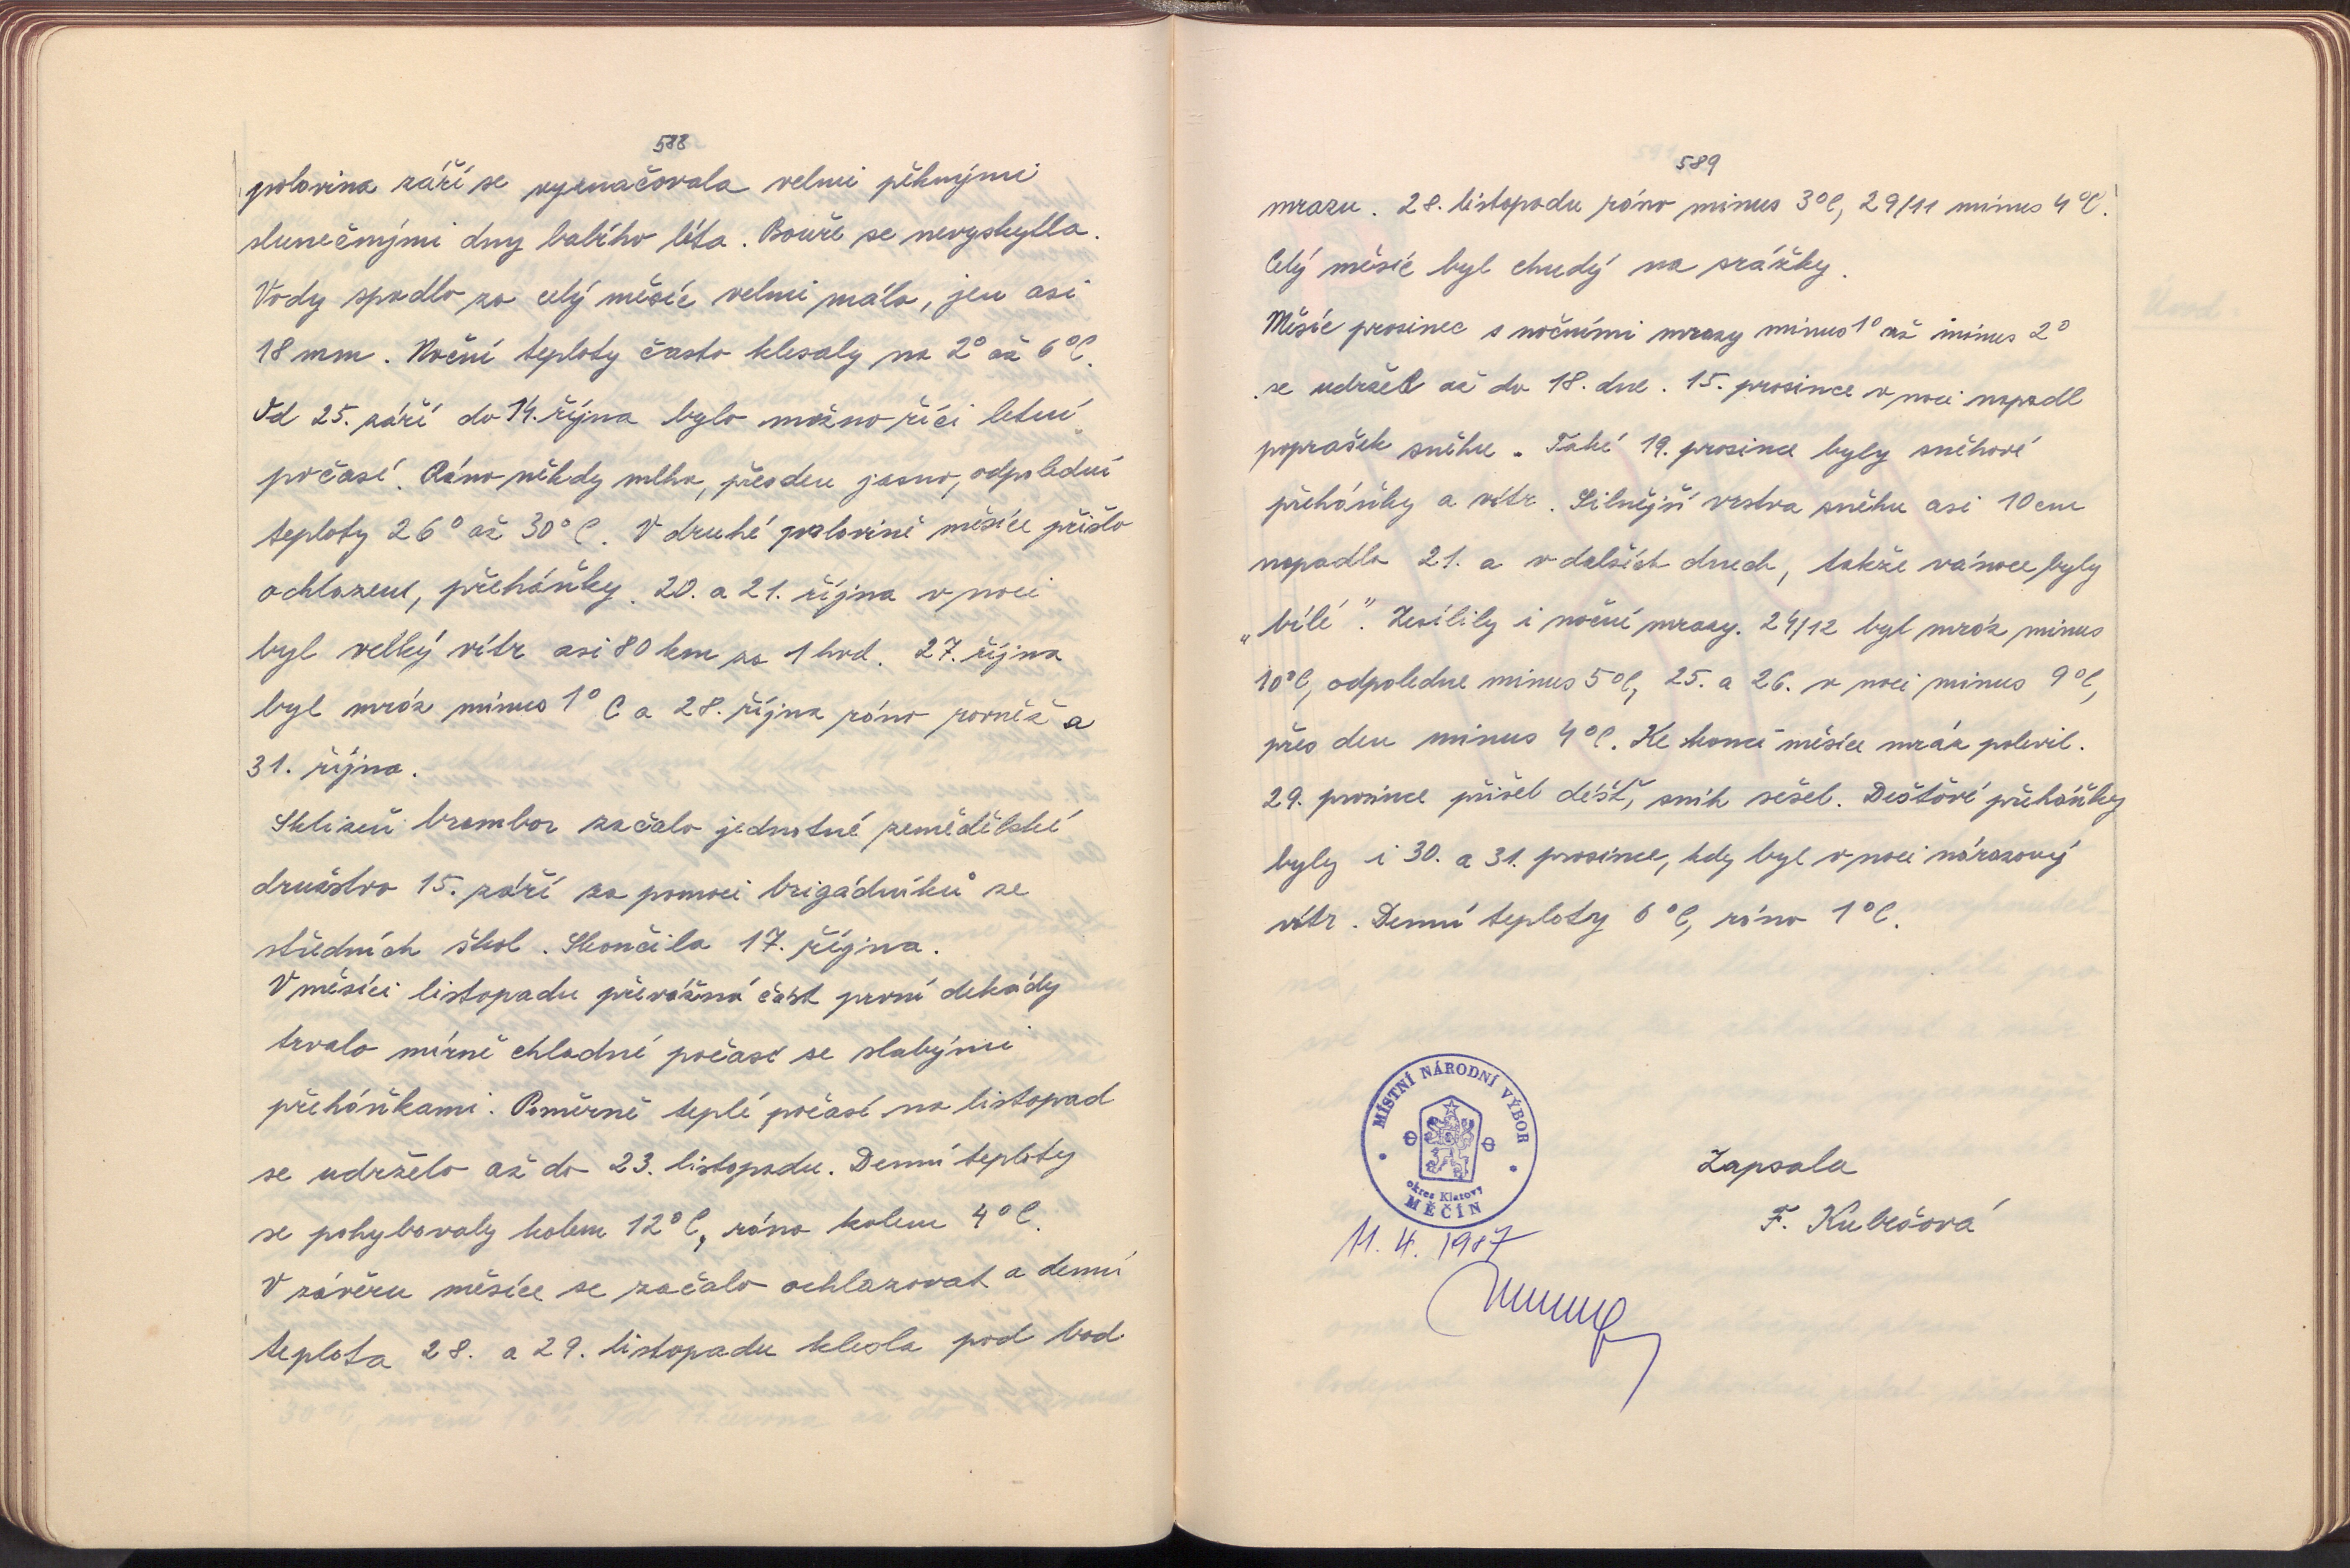 588
polovina září se vyznačovala velmi pěknými
slunečnými dny babího léta. Bouře se nevyskytla.
Vody spadlo za celý měsíc velmi málo, jen asi
18 mm. Noční teploty často klesaly na 2° až 6°C.
Od 25. září do 14. října bylo možno říci letní
počasí. Ráno někdy mlha, přes den jasno, odpolední
teploty 26° až 30° C. V druhé polovině měsíce přišlo
ochlazení, přeháňky. 20. a 21. října v noci
byl velký vítr asi 80 km za 1 hod. 27. října
byl mráz mínus 1° C a 28. října ráno rovněž a
31. října.
Sklizeň brambor začalo jednotné zemědělské
družstvo 15. září za pomoci brigádníků ze
středních škol. Skončila 17. října.
V měsíci listopadu převážná část první dekády
trvalo mírně chladné počasí se slabými
přeháňkami. Poměrně teplé počasí na listopad
se udrželo až do 23. listopadu. Denní teploty
se pohybovaly kolem 12°C, ráno kolem 4°C.
V závěru měsíce se začalo ochlazovat a denní
teplota 28. a 29. listopadu klesla pod bod
589
mrazu. 28. listopadu ráno minus 3°C, 29/11 minus 4°C.
Celý měsíc byl chudý na srážky.
Měsíc prosinec s nočními mrazy minus 1° až minus 2°
se udržel až do 18. dne. 15. prosince v noci napadl
poprašek sněhu. Také 19. prosince byly sněhové
přeháňky a vítr. Silnější vrstva sněhu asi 10 cm
napadla 21. a v dalších dnech, takže vánoce byly
„bílé". Zesílily i noční mrazy. 24/12 byl mráz minus
10°C, odpoledne minus 5°C, 25. a 26. v noci minus 9°C,
přes den minus 4°C. Ke konci měsíce mráz polevil.
29. prosince přišel déšť, sníh sešel. Dešťové přeháňky
byly i 30. a 31. prosince, kdy byl v noci nárazový
vítr. Denní teploty 6°C, ráno 1°C.
MÍSTNÍ NÁRODNÍ VÝBOR
okres Klatovy
MĚČÍN
Zapsala
F. Kubešová
11. 4. 1987